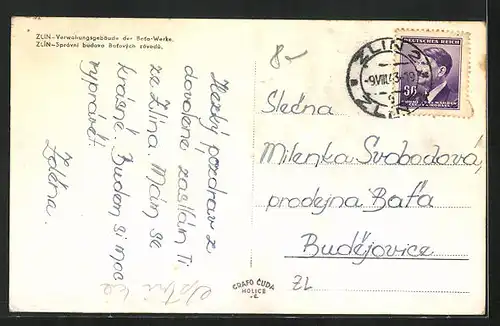 ZLÍN-Verwaltungsgebäude der Baťa-Werke.
ZLÍN-Správní budova Baťových závodů.
8-
ZLÍN 2
-9.VIII.43-19
DEUTSCHES REICH
60
Slečna
Milenka Svobodová,
prodejna Baťa
Budějovice
ZL
Hezký pozdrav z
dovolené zasílám Ti
ze Zlína. Mám se
krásně. Budem si moc
vyprávět.
GRAFO ČUDA
HOLICE